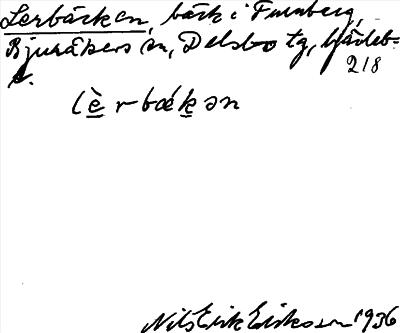 Lerbäcken, bäck i Furuberg,
Bjuråkers sn, Delsbo tg, Gävleb.
l.
218
lèrbäkən
Nils Erik Eriksson 1936